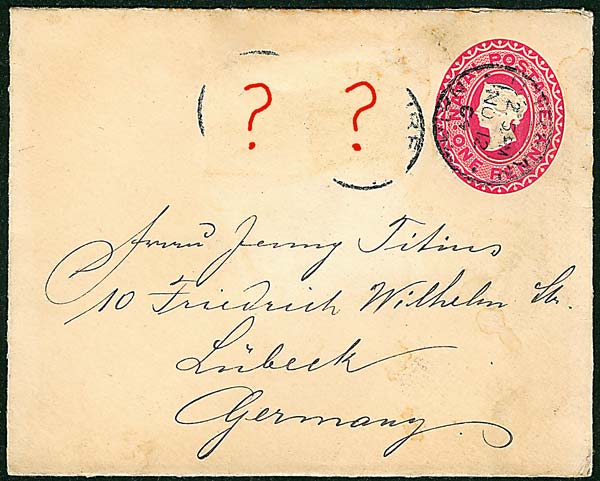 ? ?
NATAL POSTAGE
ONE PENNY
NO 12
Frau Jenny Titius
10 Friedrich Wilhelm Str.
Lübeck
Germany